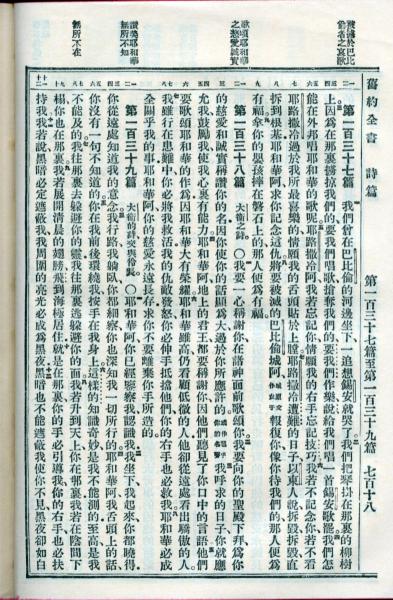 舊約全書 詩篇 第一百三十七篇至第一百三十九篇 七百十八
第一百三十七篇 我們曾在巴比倫的河邊坐下、一追想錫安就哭了。我們把琴掛在那裏的柳樹
上因爲在那裏擄掠我們的要我們唱歌搶奪我們的要我們作樂說給我們唱一首錫安歌罷我們怎
能在外邦唱耶和華的歌呢耶路撒冷阿我若忘記你情願我的右手忘記技巧我若不記念你若不看
耶路撒冷過於我所最喜樂的情願我的舌頭貼於上膛耶路撒冷遭難的日子以東人說拆毀拆毀直
拆到根基耶和華阿求你記念這仇將要被滅的巴比倫城阿報復你像你待我們的那人便爲
有福拿你的嬰孩摔在磐石上的那人便爲有福
第一百三十八篇 大衛之詩 我要一心稱謝你在諸神面前歌頌你我要向你的聖殿下拜爲你
的慈愛和誠實稱讚你的名因你使你的話顯爲大過於你所應許的我呼求的日子你就應
允我鼓勵我使我心裏有能力耶和華阿地上的君王都要稱謝你因他們聽見了你口中的言語他們
要歌頌耶和華的作爲因耶和華大有榮耀耶和華雖高仍看顧低微的人他卻從遠處看出驕傲的人
我雖行在患難中你必將我救活我的仇敵發怒你必伸手抵擋他們你的右手也必救我耶和華必成
全關乎我的事耶和華阿你的慈愛永遠長存求你不要離棄你手所造的
第一百三十九篇 大衛的詩交與伶長 耶和華阿你已經鑒察我認識我我坐下我起來你都曉得
你從遠處知道我的意念我行路我躺臥你都細察你也深知我一切所行的耶和華阿我舌頭上的話
你沒有一句不知道的你在我前後環繞我按手在我身上這樣的知識奇妙是我不能測的至高是我
不能及的我往那裏去躱避你的靈我往那裏逃躱避你的面我若升到天上你在那裏我若在陰間下
榻你也在那裏我若展開淸晨的翅膀飛到海極居住就是在那裏你的手必引導我你的右手也必扶
持我我若說黑暗必定遮蔽我我周圍的亮光必成爲黑夜黑暗也不能遮蔽我使你不見黑夜卻如白
歌頌耶和華
之慈愛誠實
讚美耶和華
無所不知
無所不在